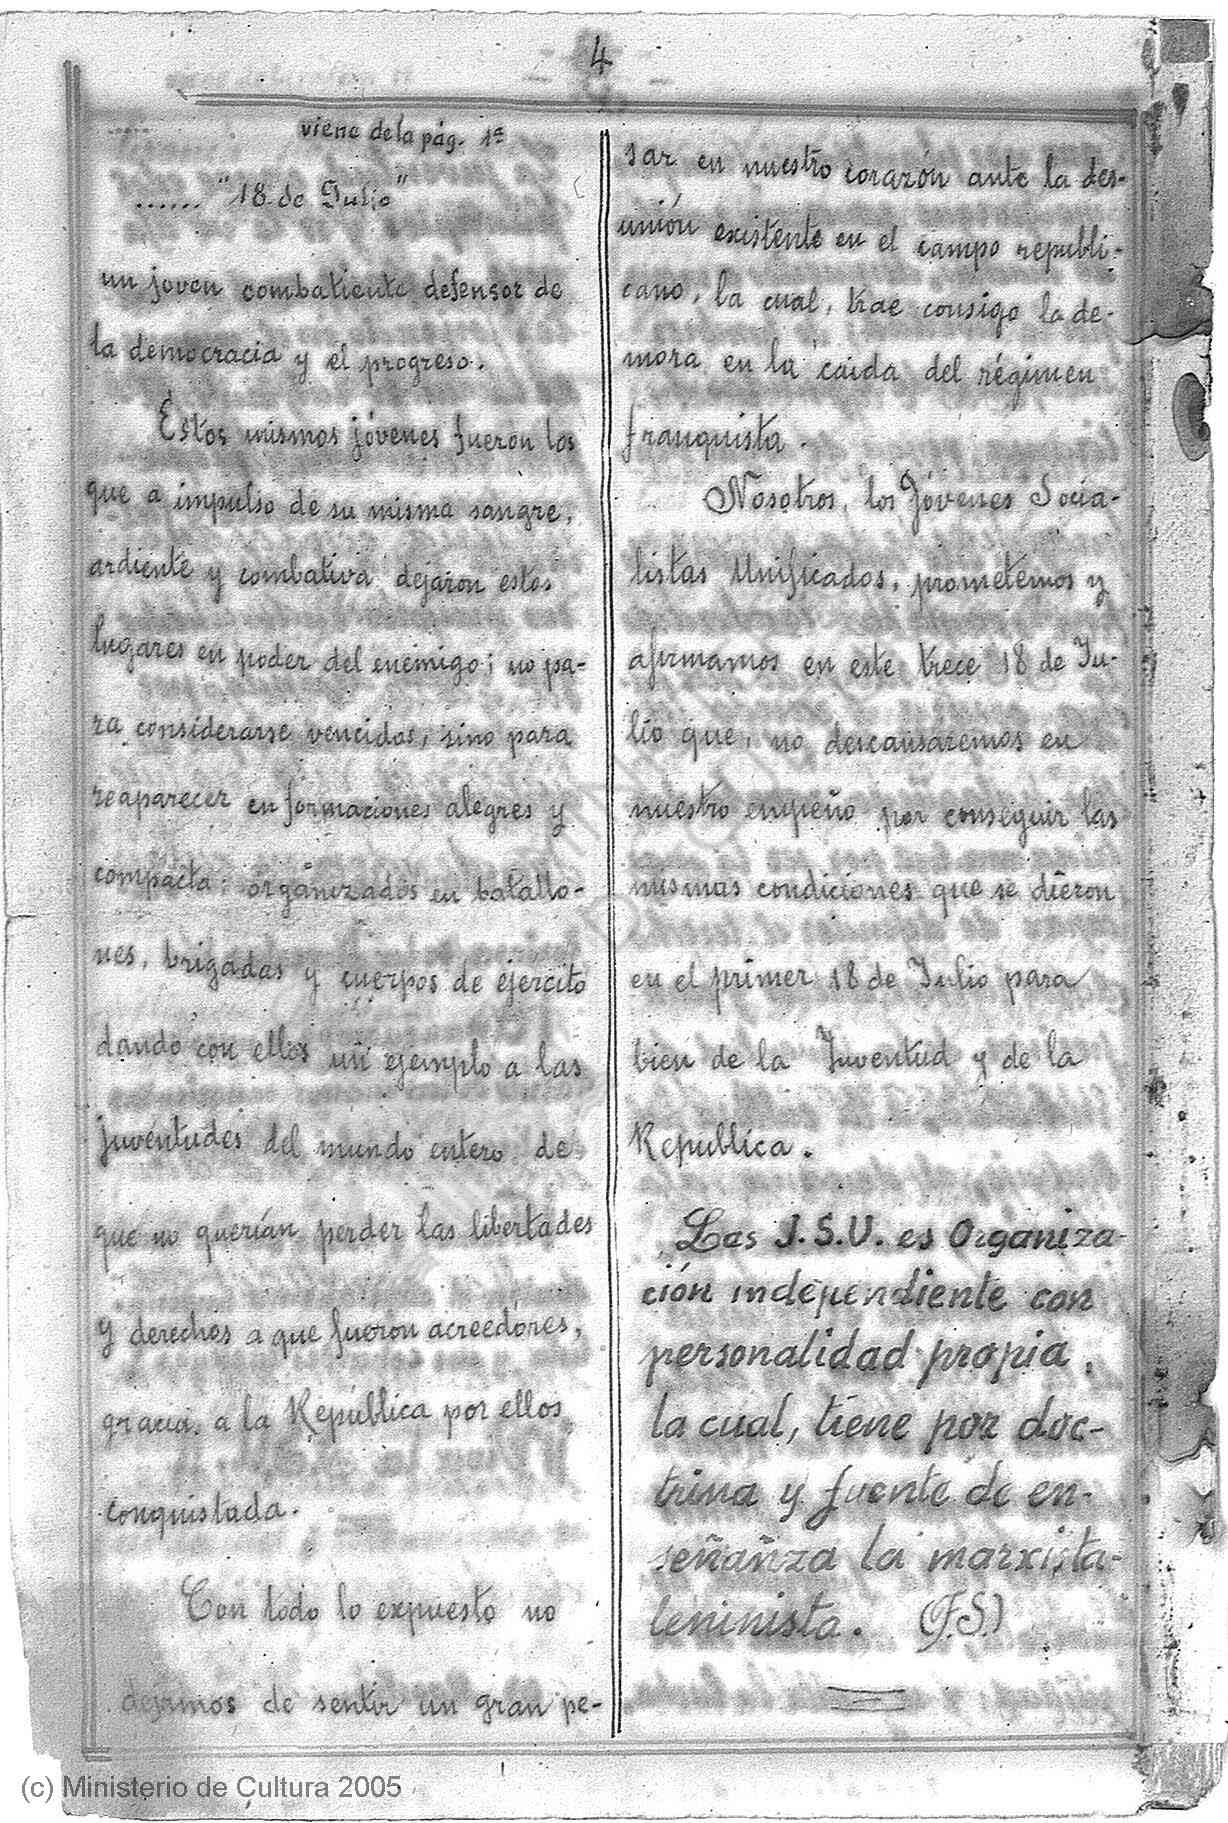 4
viene de la pág. 1ª
...... "18 de Julio"
un joven combatiente defensor de
la democracia y el progreso.
Estos mismos jóvenes fueron los
que a impulso de su misma sangre,
ardiente y combativa dejaron estos
lugares en poder del enemigo; no pa-
ra considerarse vencidos, sino para
reaparecer en formaciones alegres y
compacta; organizados en batallo-
nes, brigadas y cuerpos de ejercito
dando con ellos un ejemplo a las
juventudes del mundo entero de
que no querían perder las libertades
y derechos a que fueron acreedores,
gracias a la República por ellos
conquistada.
Con todo lo expuesto no
dejamos de sentir un gran pe-
sar en nuestro corazón ante la des-
unión existente en el campo republi-
cano, la cual, trae consigo la de-
mora en la caida del régimen
franquista.
Nosotros, los Jóvenes Socia-
listas Unificados, prometemos y
afirmamos en este trece 18 de Ju-
lio que, no descansaremos en
nuestro empeño por conseguir las
mismas condiciones que se dieron
en el primer 18 de Julio para
bien de la Juventud y de la
República.
Las J.S.U. es Organiza-
ción independiente con
personalidad propia,
la cual, tiene por doc-
trina y fuente de en-
señanza la marxista-
leninista. (J.S.)
(c) Ministerio de Cultura 2005